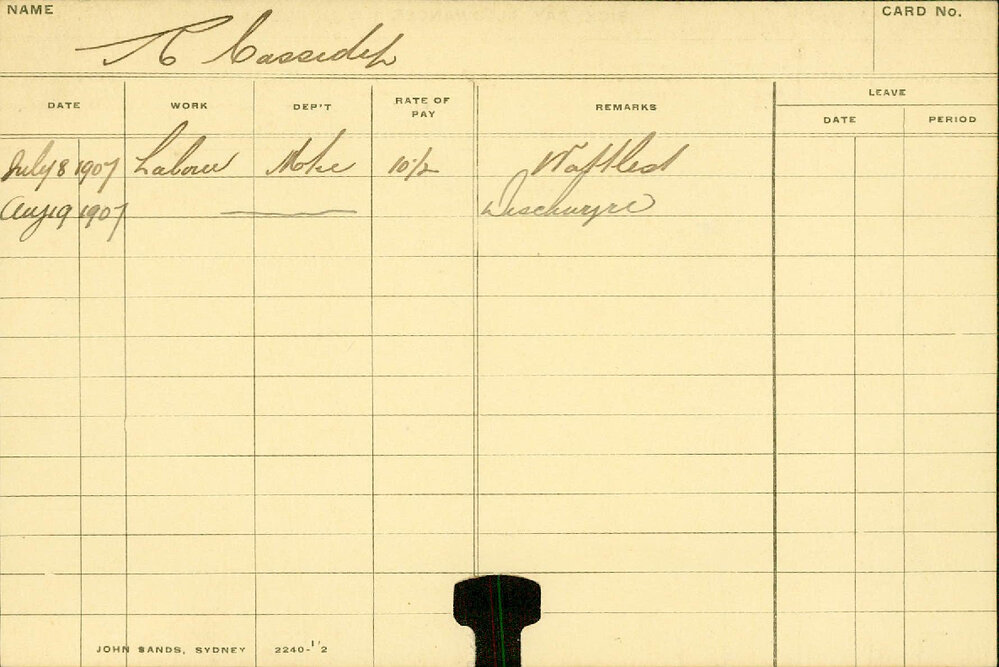 NAME CARD No.
T Cassidy
LEAVE
DATE WORK DEP'T RATE OF PAY REMARKS DATE PERIOD
July 8 1907 Labour 10/2
Aug 19 1907 Discharge
JOHN SANDS, SYDNEY 2240-11/2